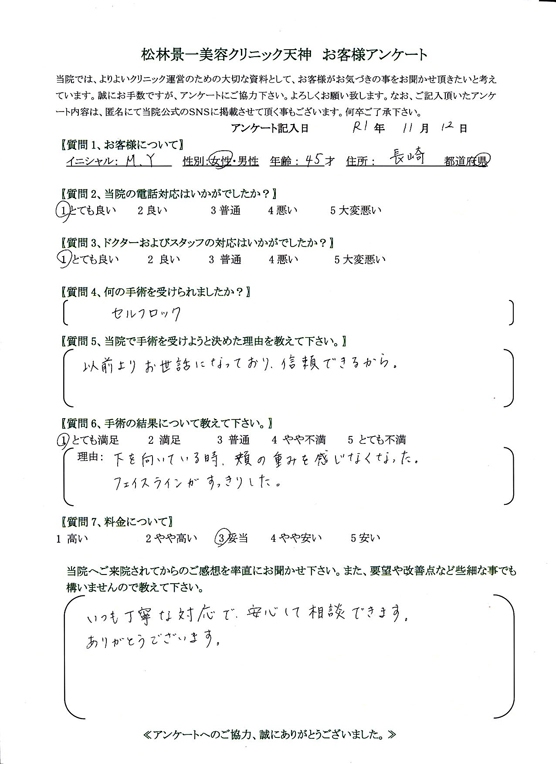 松林景一美容クリニック天神　お客様アンケート
当院では、よりよいクリニック運営のための大切な資料として、お客様がお気づきの事をお聞かせ頂きたいと考え
ています。誠にお手数ですが、アンケートにご協力下さい。よろしくお願い致します。なお、ご記入頂いたアンケ
ート内容は、匿名にて当院公式のSNSに掲載させて頂く事もございます。何卒ご了承下さい。
アンケート記入日　R1 年 11 月 12 日
〖質問1、お客様について〗
イニシャル: M.Y　性別:女性・男性　年齢: 45才　住所: 長崎　都道府県
〖質問2、当院の電話対応はいかがでしたか？〗
1 とても良い　2 良い　3 普通　4 悪い　5 大変悪い
〖質問3、ドクターおよびスタッフの対応はいかがでしたか？〗
1 とても良い　2 良い　3 普通　4 悪い　5 大変悪い
〖質問4、何の手術を受けられましたか？〗
セルフロック
〖質問5、当院で手術を受けようと決めた理由を教えて下さい。〗
以前よりお世話になっており、信頼できるから。
〖質問6、手術の結果について教えて下さい。〗
1 とても満足　2 満足　3 普通　4 やや不満　5 とても不満
理由: 下を向いている時、頬の重みを感じなくなった。
フェイスラインがすっきりした。
〖質問7、料金について〗
1 高い　2 やや高い　3 妥当　4 やや安い　5 安い
当院へご来院されてからのご感想を率直にお聞かせ下さい。また、要望や改善点など些細な事でも
構いませんので教えて下さい。
いつも丁寧な対応で、安心して相談できます。
ありがとうございます。
≪アンケートへのご協力、誠にありがとうございました。≫